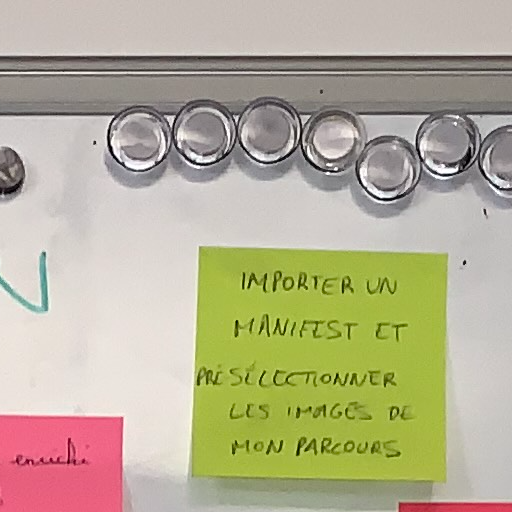 IMPORTER UN
MANIFEST ET
PRÉSÉLECTIONNER
LES IMAGES DE
MON PARCOURS
enrichi